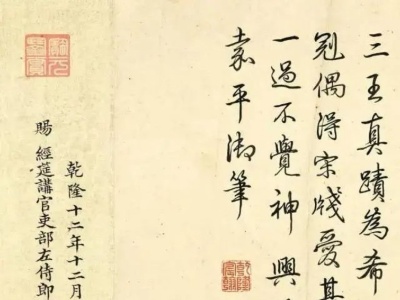 三王真蹟為希
冠偶得宋牋愛其
一過不覺神興
嘉平御筆
乾隆宸翰
乾隆十二年十二月
賜 經筵講官吏部左侍郎